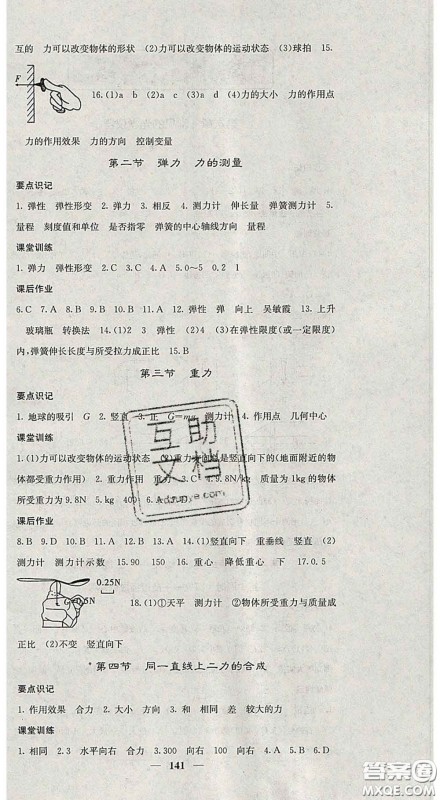 互的　力可以改变物体的形状　(2)力可以改变物体的运动状态　(3)球拍　15.
F
16.(1)a　b　(2)a　c　(3)a　d　(4)力的大小　力的作用点
力的作用效果　力的方向　控制变量
第二节　弹力　力的测量
要点识记
1. 弹性　弹性形变　2. 弹力　3. 相反　4. 测力计　伸长量　弹簧测力计　5.
量程　刻度值和单位　是否指零　弹簧的中心轴线方向　量程
课堂训练
1. 弹力　弹性形变　2.C　3.C　4.A　5.0～5　0.2　1
课后作业
6.C　7.A　8.B　9.D　10.B　11.A　12. 弹性　弹　向上　吴敏霞　13. 上升
玻璃瓶　转换法　14.(1)弹性　(2)4　(3)在弹性限度(或一定限度)
内,弹簧伸长长度与所受拉力成正比　15.B
第三节　重力
要点识记
1. 地球的吸引　G　2. 竖直　3. 正　G=mg　测力计　4. 作用点　几何中心
课堂训练
1.(1)力可以改变物体的运动状态　(2)重力方向总是竖直向下的(地面附近的物
体都受重力作用)　2. 重力作用　重力　3.C　4.9.8N/kg　质量为1kg的物体
所受重力为9.8N　5.kg　400　6.A
课后作业
8.B　9.D　10.B　11.A　12.D　13.B　14.(1)竖直向下　重垂线　竖直　(2)
测力计　测力计示数　15.90　150　16. 重心　降低重心　下　17.0.5
0.25N
G=0.5N
18.(1)①天平　测力计　②物体所受重力与质量成
正比　(2)不变　竖直向下
*第四节　同一直线上二力的合成
要点识记
1. 作用效果　合力　2. 大小　方向　3. 和　相同　差　较大的力
课堂训练
1. 相同　2.3　水平向右　合力　3.300　向右　100　向右　4.A　5.B　6.D
141
互助
文档
答案圈
MXQE.COM